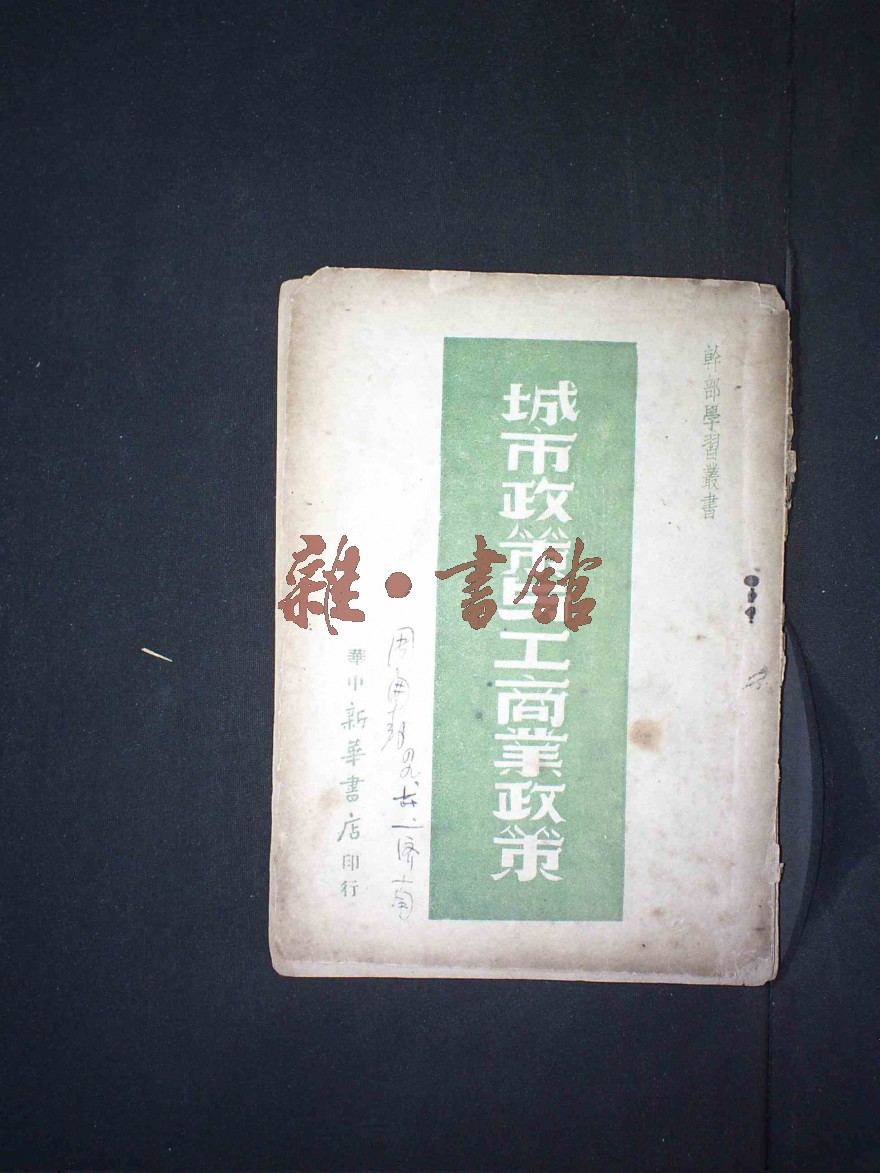 幹部學習叢書
城市政策与工商業政策
華中新華書店印行
雜·書館
四九、
濟南